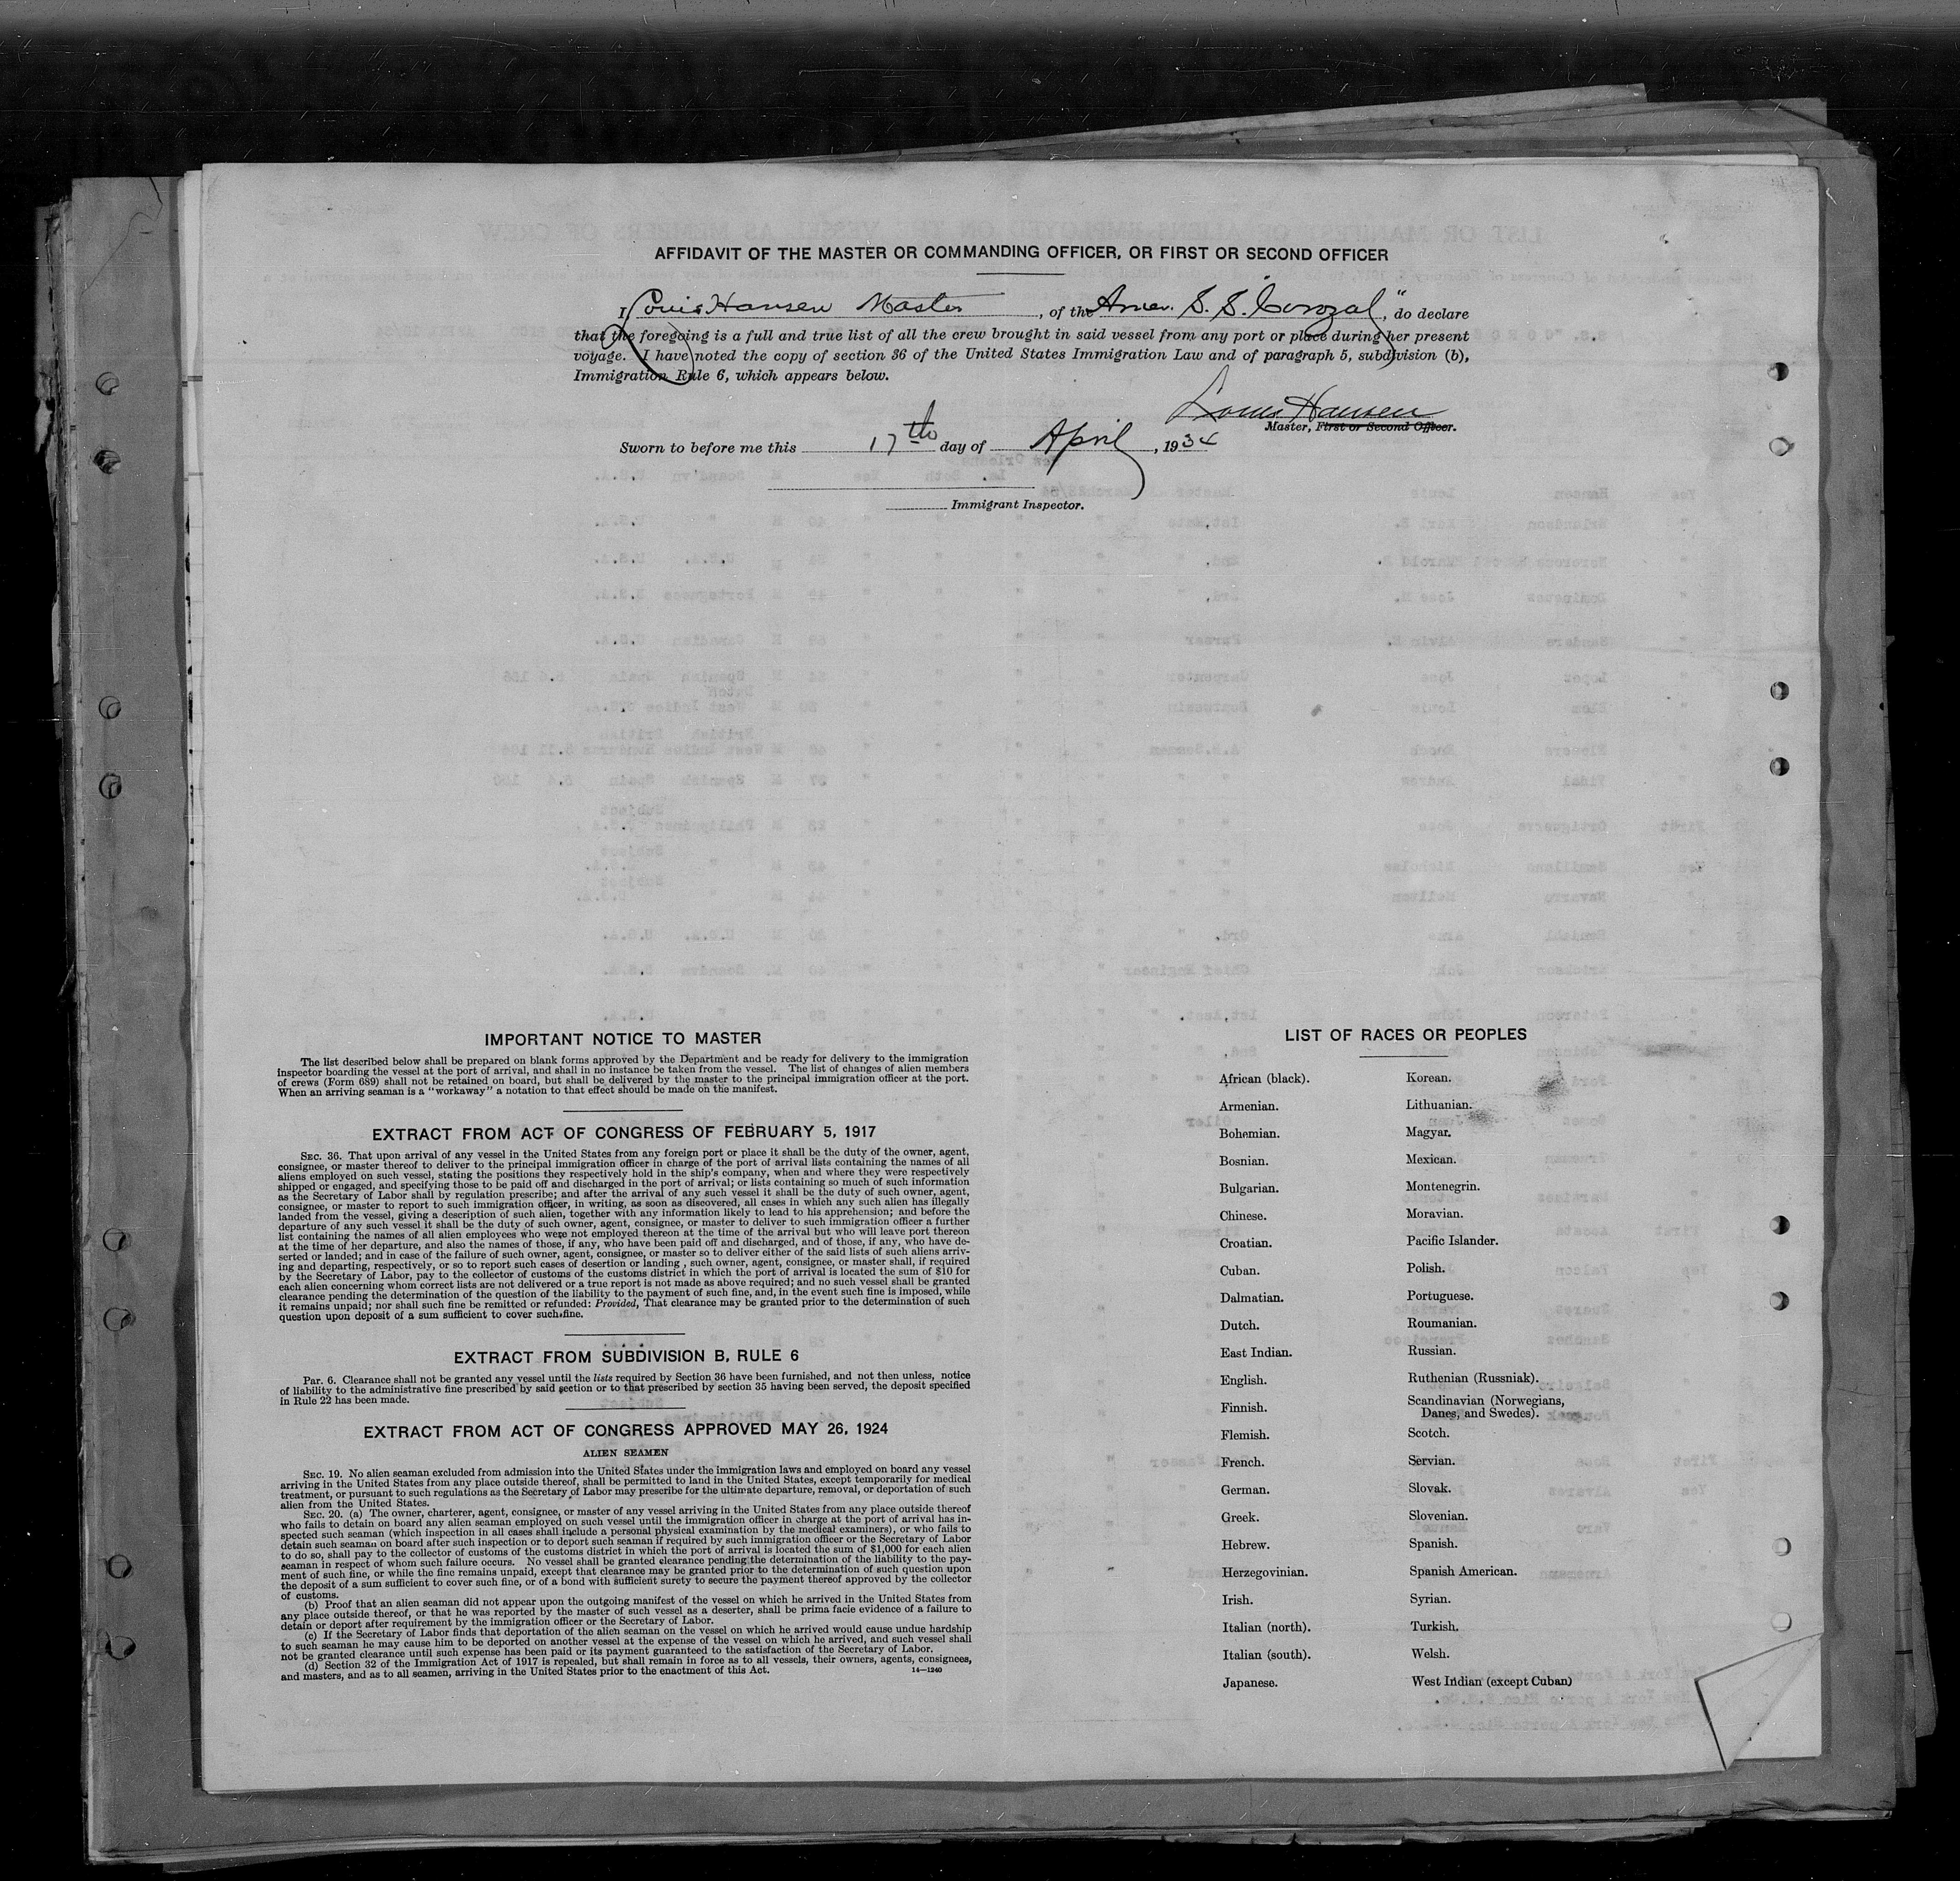 AFFIDAVIT OF THE MASTER OR COMMANDING OFFICER, OR FIRST OR SECOND OFFICER
I, Louis Hansen Master, of the Amer. S. S. "Corozal", do declare
that the foregoing is a full and true list of all the crew brought in said vessel from any port or place during her present
voyage. I have noted the copy of section 36 of the United States Immigration Law and of paragraph 5, subdivision (b),
Immigration Rule 6, which appears below.
Louis Hansen
Master, First or Second Officer.
Sworn to before me this 17th day of April, 1934
Immigrant Inspector.
IMPORTANT NOTICE TO MASTER
The list described below shall be prepared on blank forms approved by the Department and be ready for delivery to the immigration
inspector boarding the vessel at the port of arrival, and shall in no instance be taken from the vessel. The list of changes of alien members
of crews (Form 689) shall not be retained on board, but shall be delivered by the master to the principal immigration officer at the port.
When an arriving seaman is a "workaway" a notation to that effect should be made on the manifest.
EXTRACT FROM ACT OF CONGRESS OF FEBRUARY 5, 1917
SEC. 36. That upon arrival of any vessel in the United States from any foreign port or place it shall be the duty of the owner, agent,
consignee, or master thereof to deliver to the principal immigration officer in charge of the port of arrival lists containing the names of all
aliens employed on such vessel, stating the positions they respectively hold in the ship's company, when and where they were respectively
shipped or engaged, and specifying those to be paid off and discharged in the port of arrival; or lists containing so much of such information
as the Secretary of Labor shall by regulation prescribe; and after the arrival of any such vessel it shall be the duty of such owner, agent,
consignee, or master to report to such immigration officer, in writing, as soon as discovered, all cases in which any such alien has illegally
landed from the vessel, giving a description of such alien, together with any information likely to lead to his apprehension; and before the
departure of any such vessel it shall be the duty of such owner, agent, consignee, or master to deliver to such immigration officer a further
list containing the names of all alien employees who were not employed thereon at the time of the arrival but who will leave port thereon
at the time of her departure, and also the names of those, if any, who have been paid off and discharged, and of those, if any, who have de-
serted or landed; and in case of the failure of such owner, agent, consignee, or master so to deliver either of the said lists of such aliens arriv-
ing and departing, respectively, or so to report such cases of desertion or landing, such owner, agent, consignee, or master shall, if required
by the Secretary of Labor, pay to the collector of customs of the customs district in which the port of arrival is located the sum of $10 for
each alien concerning whom correct lists are not delivered or a true report is not made as above required; and no such vessel shall be granted
clearance pending the determination of the question of the liability to the payment of such fine, and, in the event such fine is imposed, while
it remains unpaid; nor shall such fine be remitted or refunded: Provided, That clearance may be granted prior to the determination of such
question upon deposit of a sum sufficient to cover such fine.
EXTRACT FROM SUBDIVISION B, RULE 6
Par. 6. Clearance shall not be granted any vessel until the lists required by Section 36 have been furnished, and not then unless, notice
of liability to the administrative fine prescribed by said section or to that prescribed by section 35 having been served, the deposit specified
in Rule 22 has been made.
EXTRACT FROM ACT OF CONGRESS APPROVED MAY 26, 1924
ALIEN SEAMEN
SEC. 19. No alien seaman excluded from admission into the United States under the immigration laws and employed on board any vessel
arriving in the United States from any place outside thereof, shall be permitted to land in the United States, except temporarily for medical
treatment, or pursuant to such regulations as the Secretary of Labor may prescribe for the ultimate departure, removal, or deportation of such
alien from the United States.
SEC. 20. (a) The owner, charterer, agent, consignee, or master of any vessel arriving in the United States from any place outside thereof
who fails to detain on board any alien seaman employed on such vessel until the immigration officer in charge at the port of arrival has in-
spected such seaman (which inspection in all cases shall include a personal physical examination by the medical examiners), or who fails to
detain such seaman on board after such inspection or to deport such seaman if required by such immigration officer or the Secretary of Labor
to do so, shall pay to the collector of customs of the customs district in which the port of arrival is located the sum of $1,000 for each alien
seaman in respect of whom such failure occurs. No vessel shall be granted clearance pending the determination of the liability to the pay-
ment of such fine, or while the fine remains unpaid, except that clearance may be granted prior to the determination of such question upon
the deposit of a sum sufficient to cover such fine, or of a bond with sufficient surety to secure the payment thereof approved by the collector
of customs.
(b) Proof that an alien seaman did not appear upon the outgoing manifest of the vessel on which he arrived in the United States from
any place outside thereof, or that he was reported by the master of such vessel as a deserter, shall be prima facie evidence of a failure to
detain or deport after requirement by the immigration officer or the Secretary of Labor.
(c) If the Secretary of Labor finds that deportation of the alien seaman on the vessel on which he arrived would cause undue hardship
to such seaman he may cause him to be deported on another vessel at the expense of the vessel on which he arrived, and such vessel shall
not be granted clearance until such expense has been paid or its payment guaranteed to the satisfaction of the Secretary of Labor.
(d) Section 32 of the Immigration Act of 1917 is repealed, but shall remain in force as to all vessels, their owners, agents, consignees,
and masters, and as to all seamen, arriving in the United States prior to the enactment of this Act.
14—1240
LIST OF RACES OR PEOPLES
African (black).
Armenian.
Bohemian.
Bosnian.
Bulgarian.
Chinese.
Croatian.
Cuban.
Dalmatian.
Dutch.
East Indian.
English.
Finnish.
Flemish.
French.
German.
Greek.
Hebrew.
Herzegovinian.
Irish.
Italian (north).
Italian (south).
Japanese.
Korean.
Lithuanian.
Magyar.
Mexican.
Montenegrin.
Moravian.
Pacific Islander.
Polish.
Portuguese.
Roumanian.
Russian.
Ruthenian (Russniak).
Scandinavian (Norwegians,
Danes, and Swedes).
Scotch.
Servian.
Slovak.
Slovenian.
Spanish.
Spanish American.
Syrian.
Turkish.
Welsh.
West Indian (except Cuban)